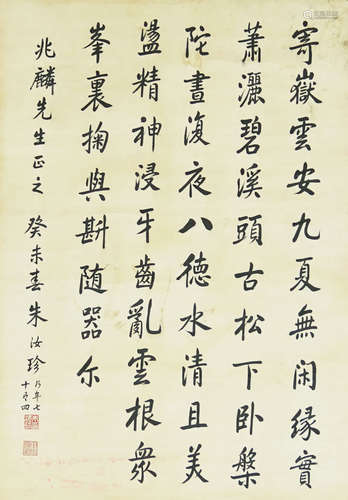 寄嶽雲安九夏無闲缘實
蕭灑碧溪頭古松下卧槃
陀晝復夜八德水清且美
盪精神浸牙齒亂雲根衆
峯裏掬與斟随器尔
兆麟先生正之 癸未春朱汝珍 行年七十又四